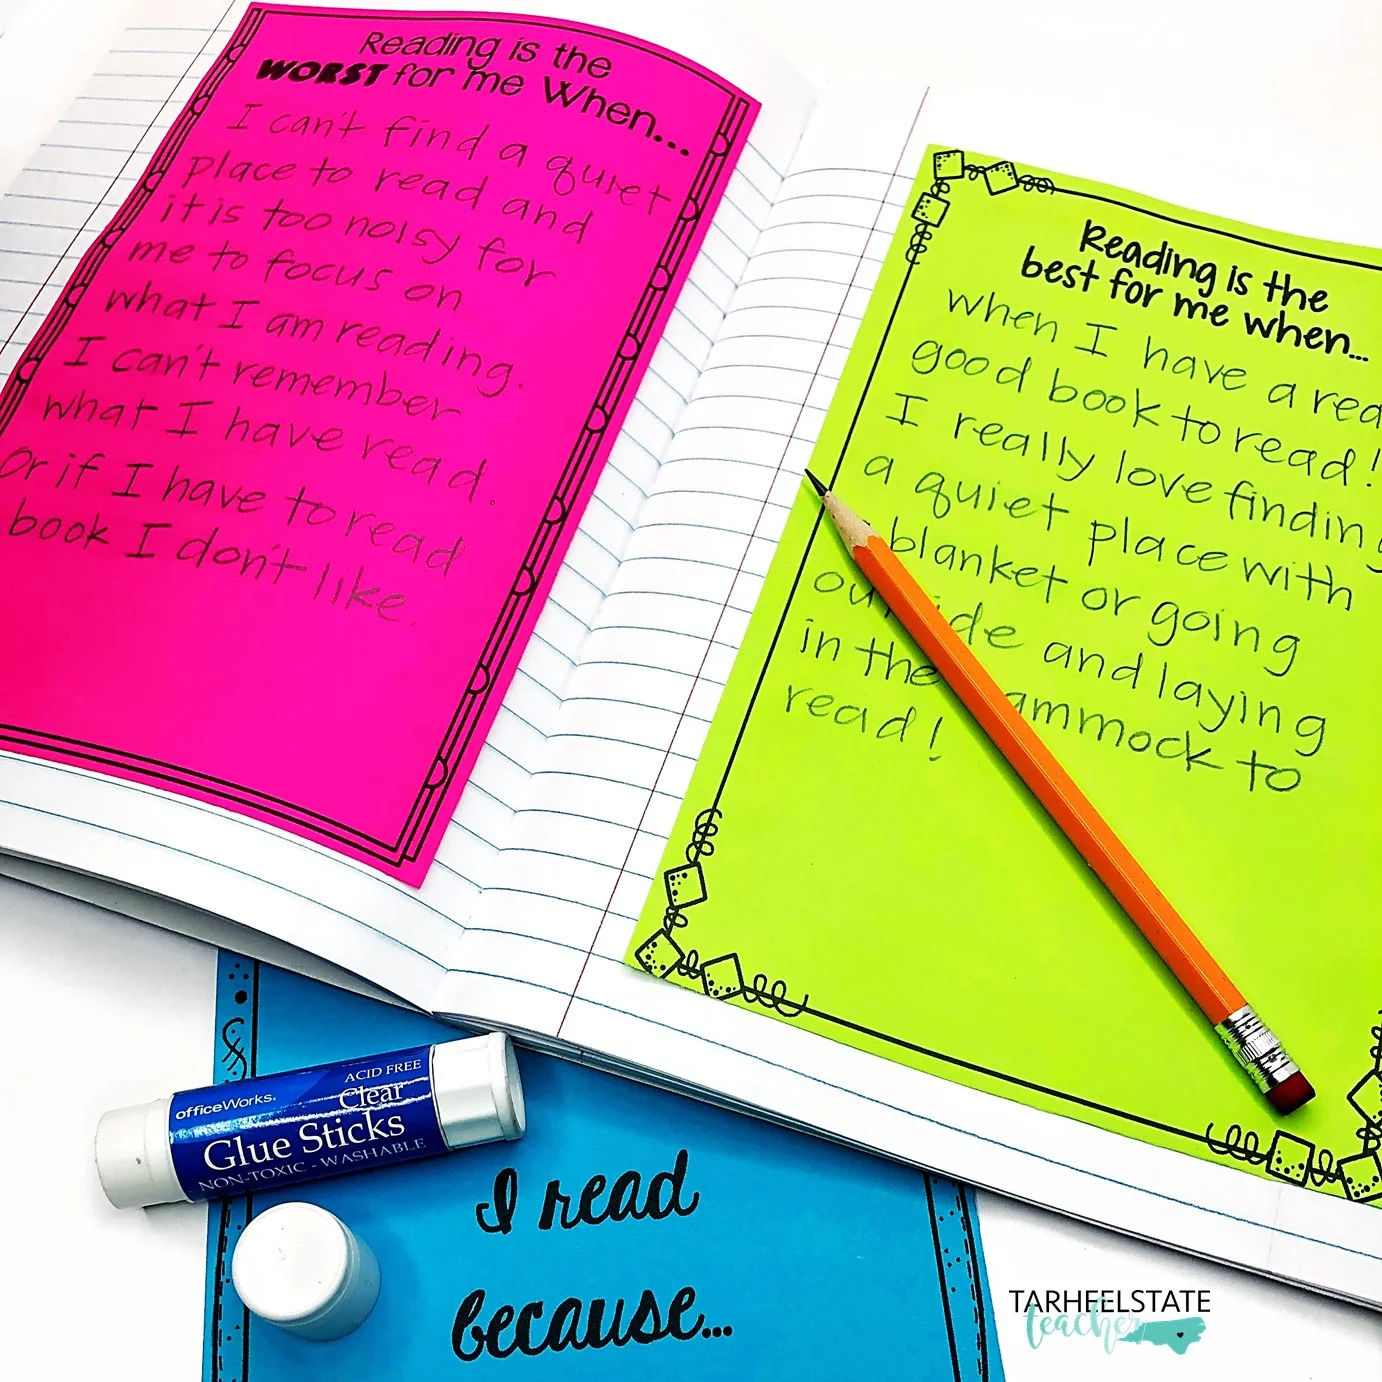 Reading is the
WORST for me When...
I can't find a quiet
place to read and
it is too noisy for
me to focus on
what I am reading.
I can't remember
what I have read.
Or if I have to read
book I don't like.
Reading is the
best for me when...
when I have a
good book to read!
I really love
a quiet place with
blanket or going
and laying
in the
to
read!
ACID FREE
officeWorks.
Clear
Glue Sticks
NON-TOXIC - WASHABLE
I read
because...
TARHEELSTATE
teacher